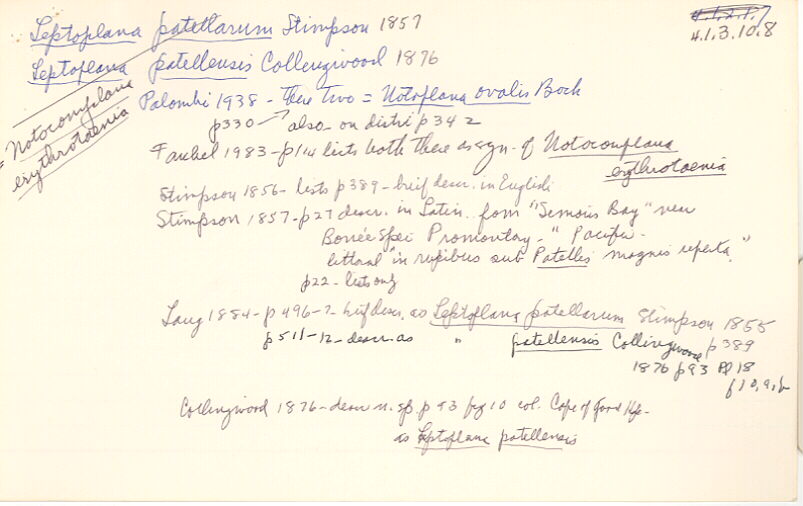 Leptoplana patellarum Stimpson 1857
4.1.2.1.7
4.1.3.10.8
Leptoplana patellensis Collingwood 1876
= Notocomplana erythrotaenia
Palombi 1938 - these two = Notoplana ovalis Bock
p330 → also on distri p 342
Faubel 1983 - p114 lists both these as syn. of Notocomplana
erythrotaenia
Stimpson 1856 - lists p389 - brief descr. in English
Stimpson 1857 - p27 descr. in Latin from "Simons Bay" near
Bonae Spei Promontory - "Pacific -
littoral "in rupibus sub Patellis magnis reperta."
p22 - lists only
Lang 1884 - p496-7 - brief descr. as Leptoplana patellarum Stimpson 1855
p389
p511-12 - descr. as " patellensis Collingwood
1876 p93 Pl 18
f10, a, b
Collingwood 1876 - descr n. sp. p93 fig 10 col. Cape of Good Hope -
as Leptoplana patellensis